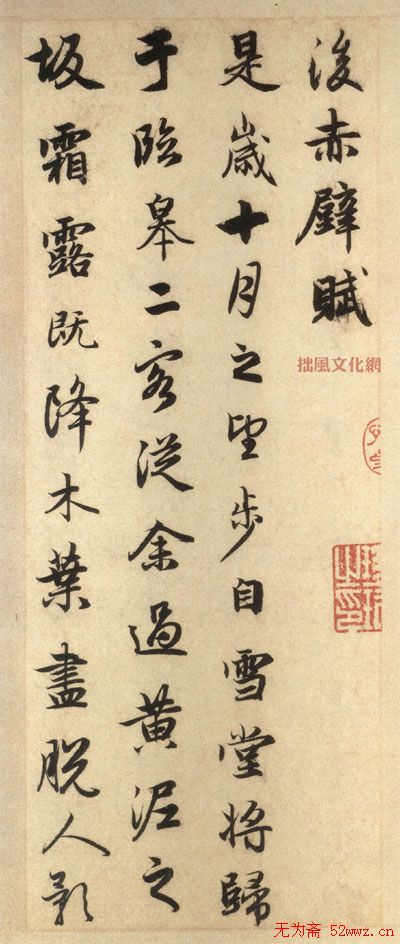 後赤壁賦
是歲十月之望步自雪堂將歸
于臨皋二客從余過黃泥之
坂霜露既降木葉盡脫人影
拙風文化網
无为斋 52wwz.cn